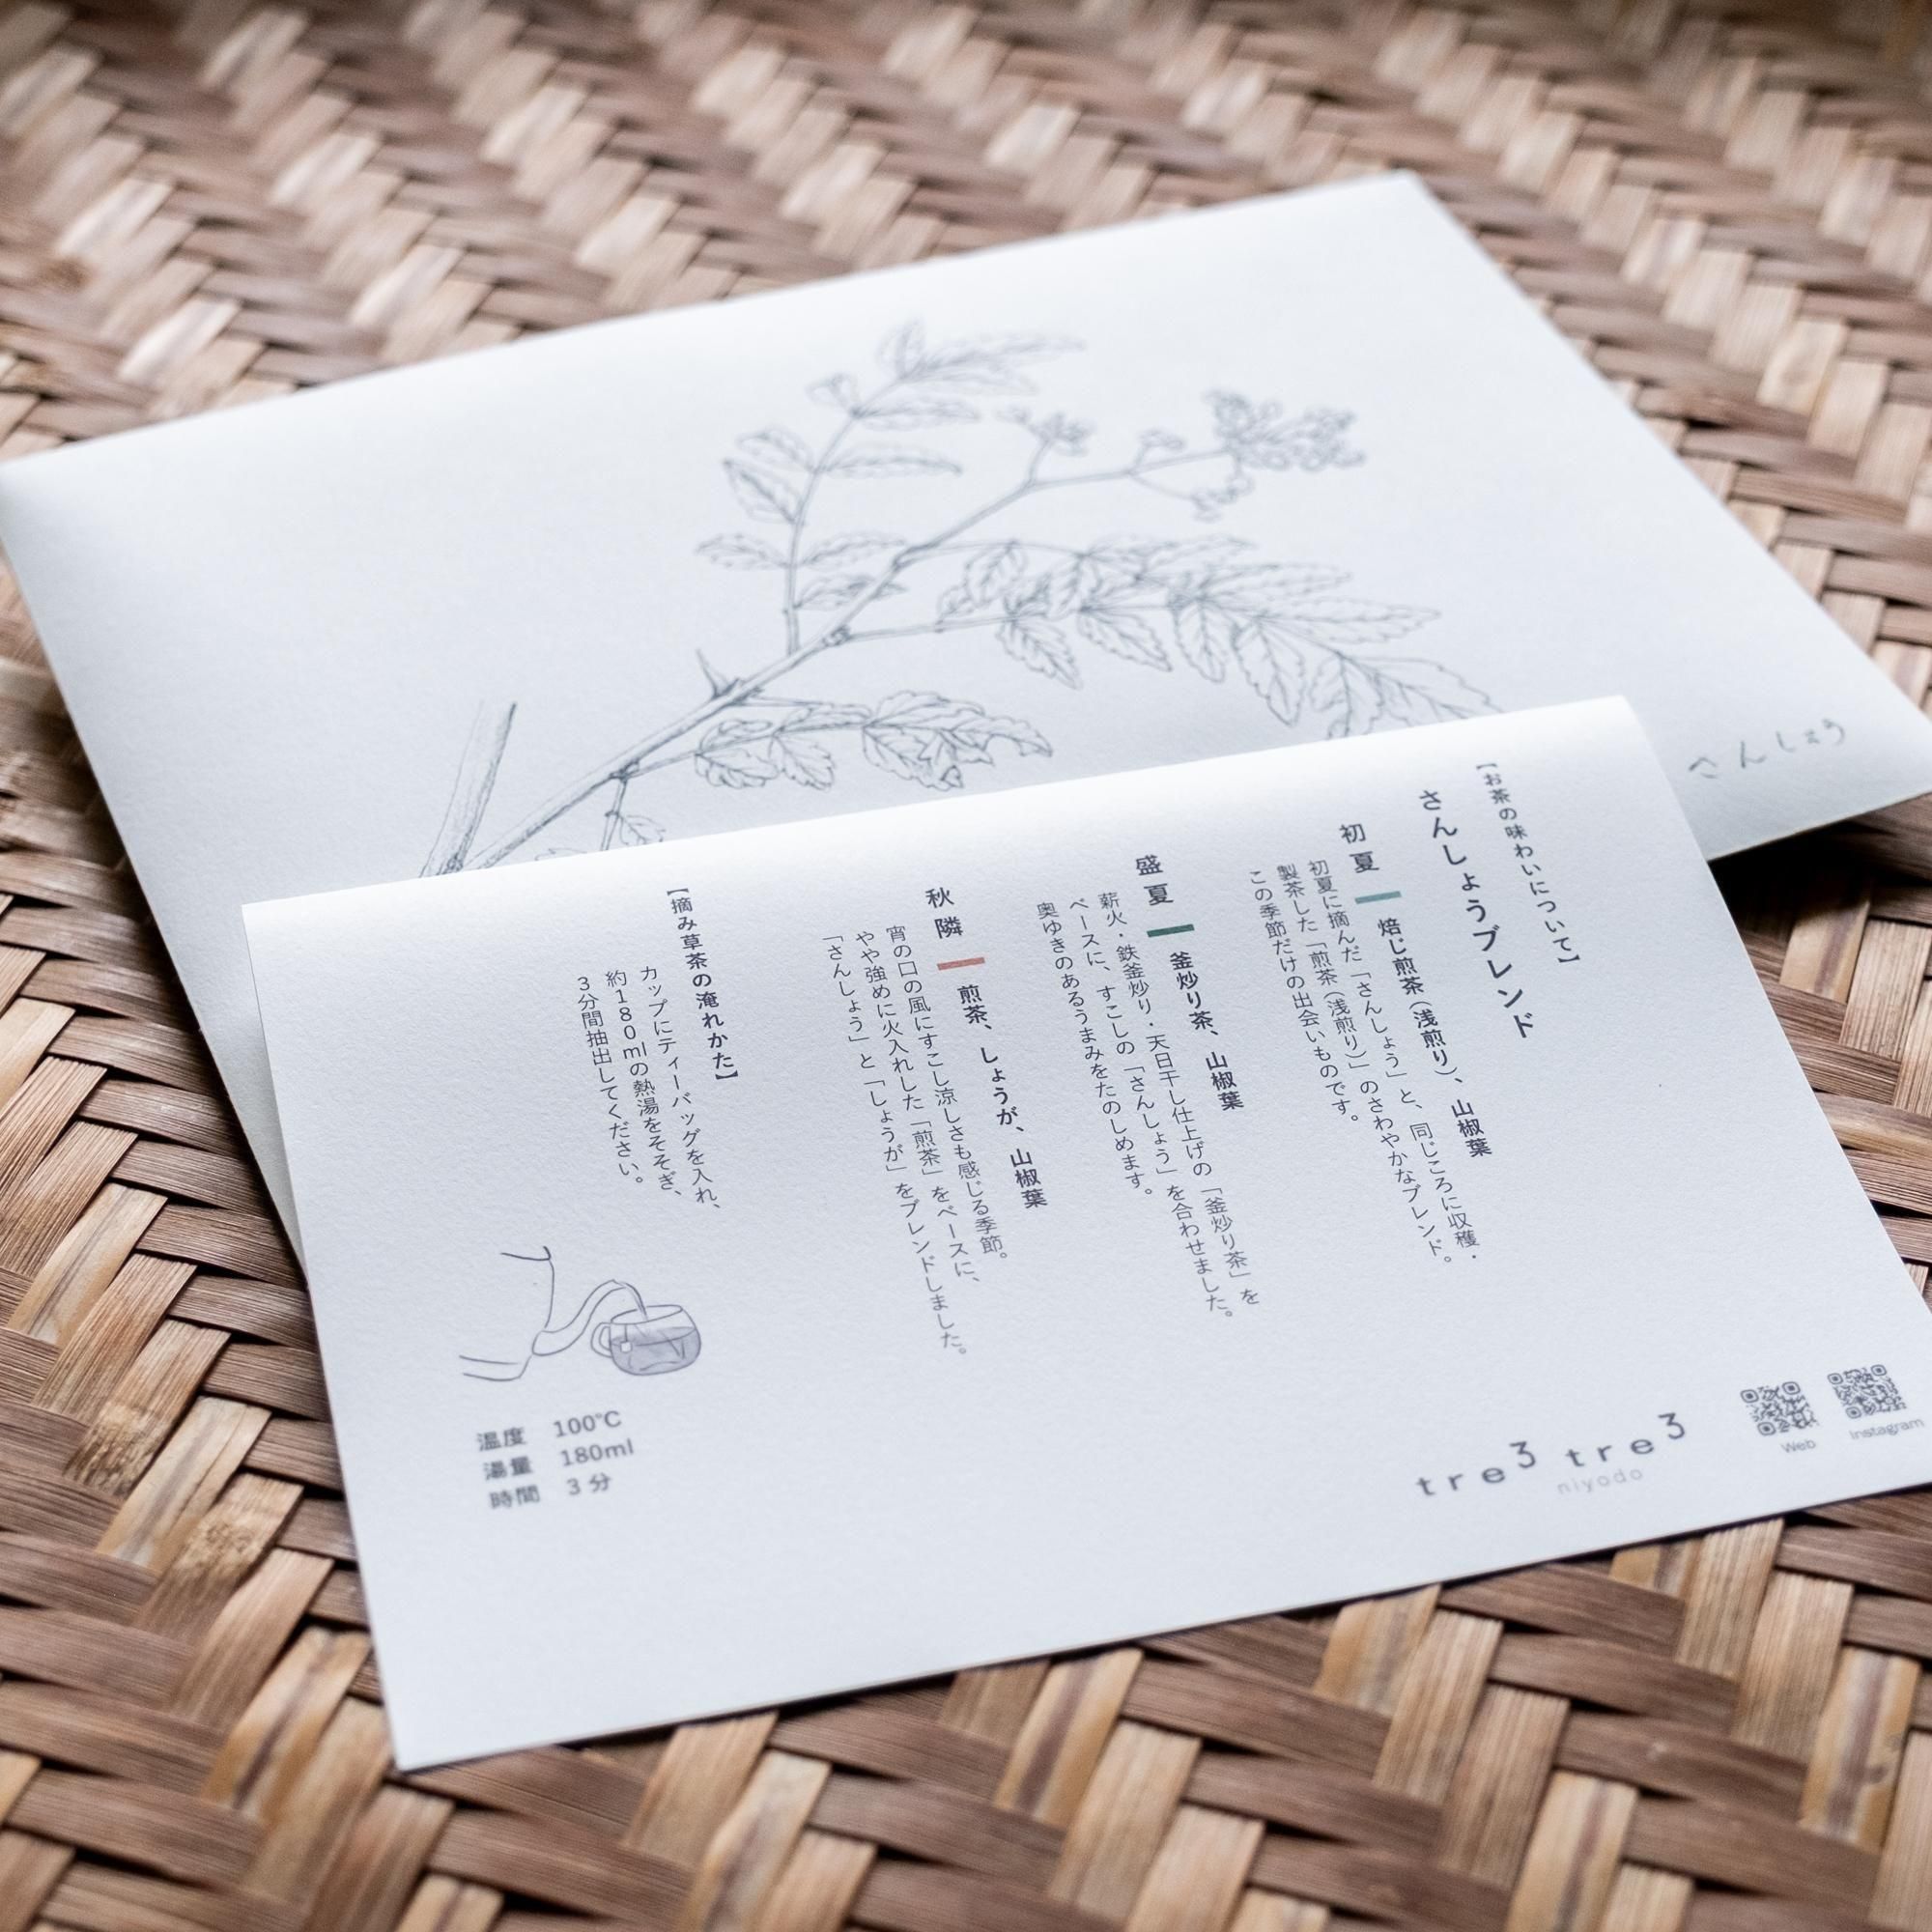 さんしょう
【お茶の味わいについて】
さんしょうブレンド
初夏
焙じ煎茶（浅煎り）、山椒葉
初夏に摘んだ「さんしょう」と、同じころに収穫・
製茶した「煎茶（浅煎り）」のさわやかなブレンド。
この季節だけの出会いものです。
盛夏
釜炒り茶、山椒葉
薪火・鉄釜炒り・天日干し仕上げの「釜炒り茶」を
ベースに、すこしの「さんしょう」を合わせました。
奥ゆきのあるうまみをたのしめます。
秋隣
煎茶、しょうが、山椒葉
宵の口の風にすこし涼しさも感じる季節。
やや強めに火入れした「煎茶」をベースに、
「さんしょう」と「しょうが」をブレンドしました。
【摘み草茶の淹れかた】
カップにティーバッグを入れ、
約180mlの熱湯をそそぎ、
3分間抽出してください。
温度 100℃
湯量 180ml
時間 3分
tre3 tre3
niyodo
Web
Instagram